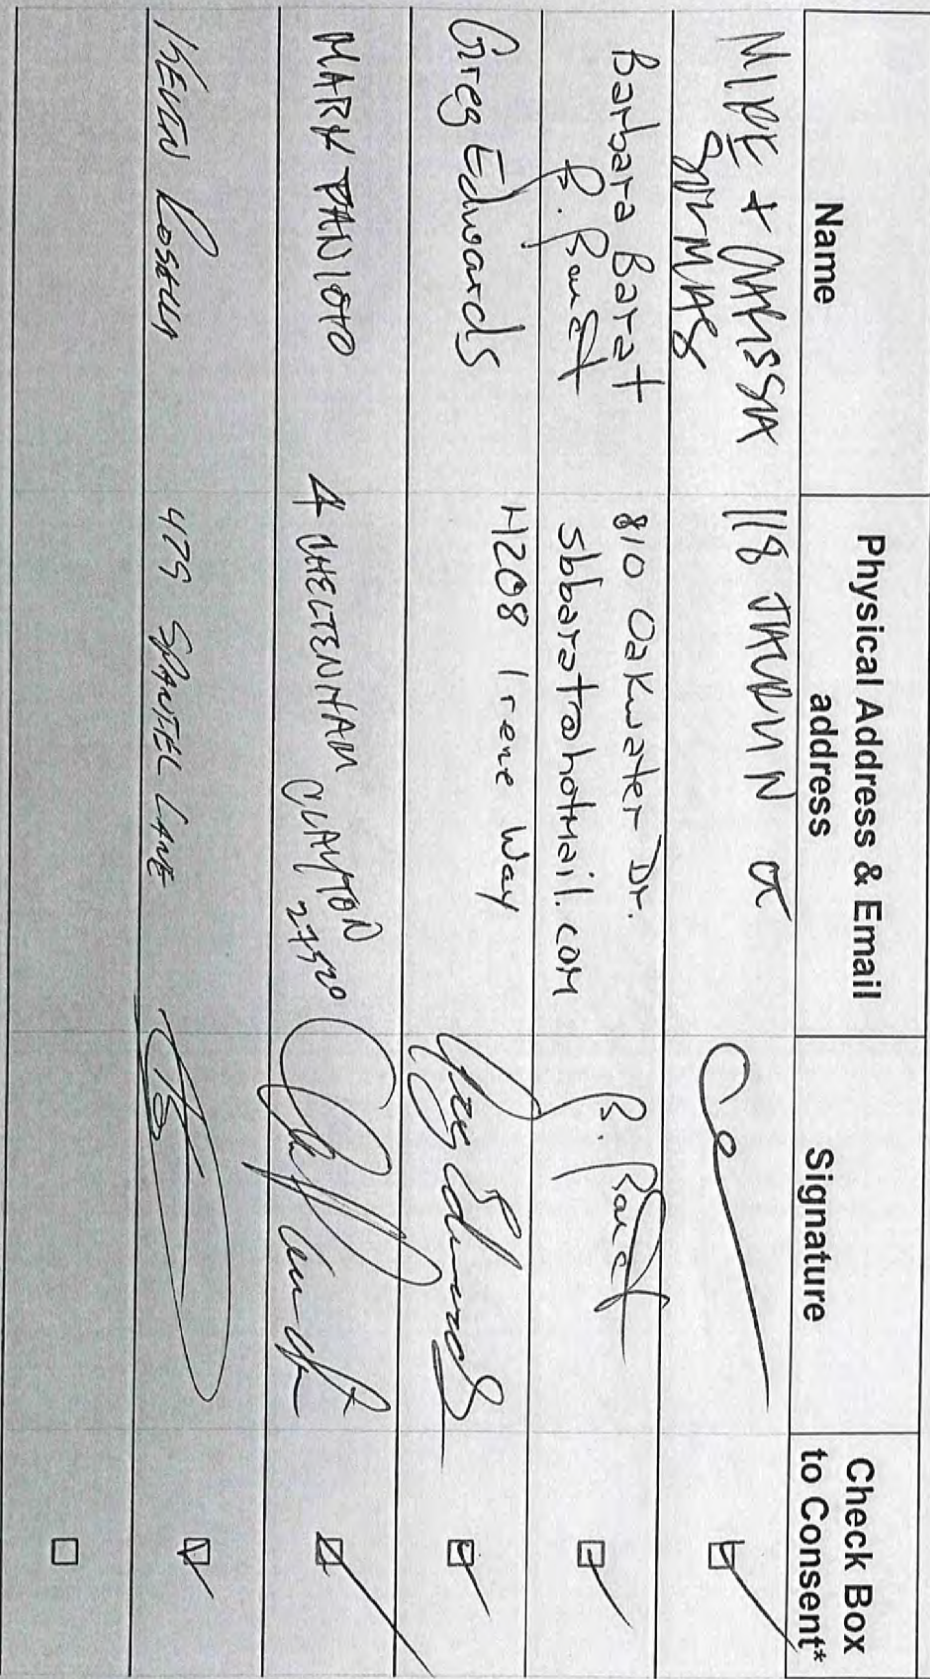 Name
Physical Address & Email
address
Signature
Check Box
to Consent*
MIKE +
118
Barbara Barat
B. Barat
810 Oakwater Dr.
sbbarat@hotmail.com
B. Barat
Greg Edwards
4208 Irene Way
Greg Edwards
MARK
4 CHELTENHAM
CLAYTON
27520
KEVIN
479 SPANIEL LANE